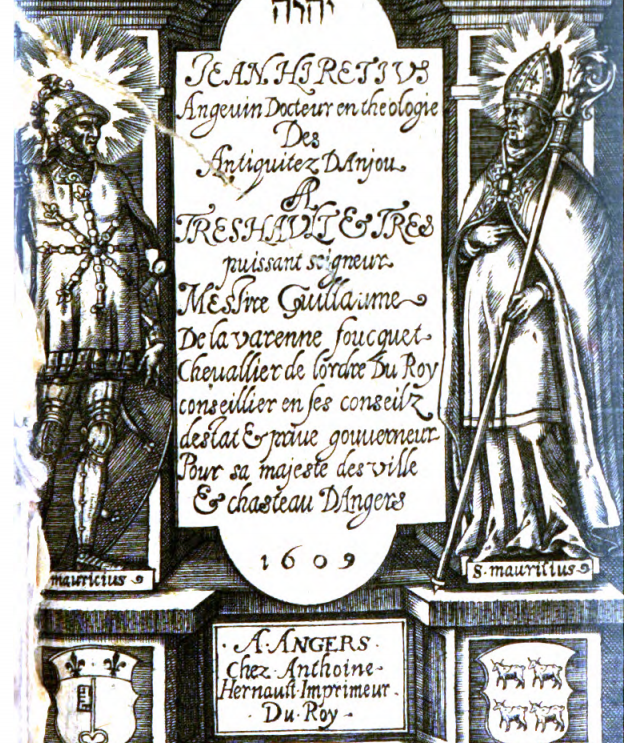 יהוה
JEAN HIRETIVS
Angeuin Docteur en theologie
Des
Antiquitez DAnjou
A
TRESHAVLT & TRES
puissant seigneur
Messire Guillaume
De la varenne foucquet
Cheuallier de lordre Du Roy
conseillier en ses conseilz
destat & priue gouuerneur
Pour sa majeste des ville
& chasteau DAngers
1609
mauricius
S. maurilius
A. ANGERS.
Chez Anthoine
Hernault Imprimeur
Du Roy